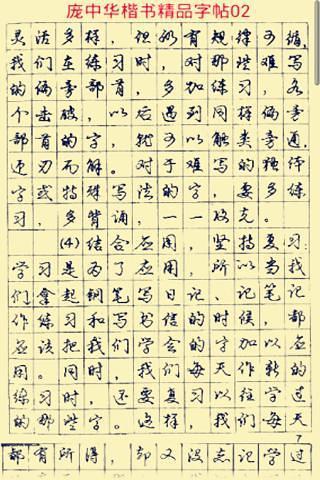 庞中华楷书精品字帖02
灵活多样，但仍有规律可循，
我们在练习时，对那些难写
的偏旁部首，多加练习，各
个击破，以后遇到同样偏旁
部首的字，就可以触类旁通，
迎刃而解。对于难写的独体
字或特殊写法的字，要多练
习，多背诵，一一攻克。
(4)结合应用，坚持复习：
学习是为了应用，所以当我
们拿起钢笔写日记、记笔记
作练习和写书信的时候，都
应该把我们学会的字加以应
用。同时，我们每天作新的
练习时，还要复习以往学过
的那些字。这样，我们每天
7
都有所得，却又没忘记学过